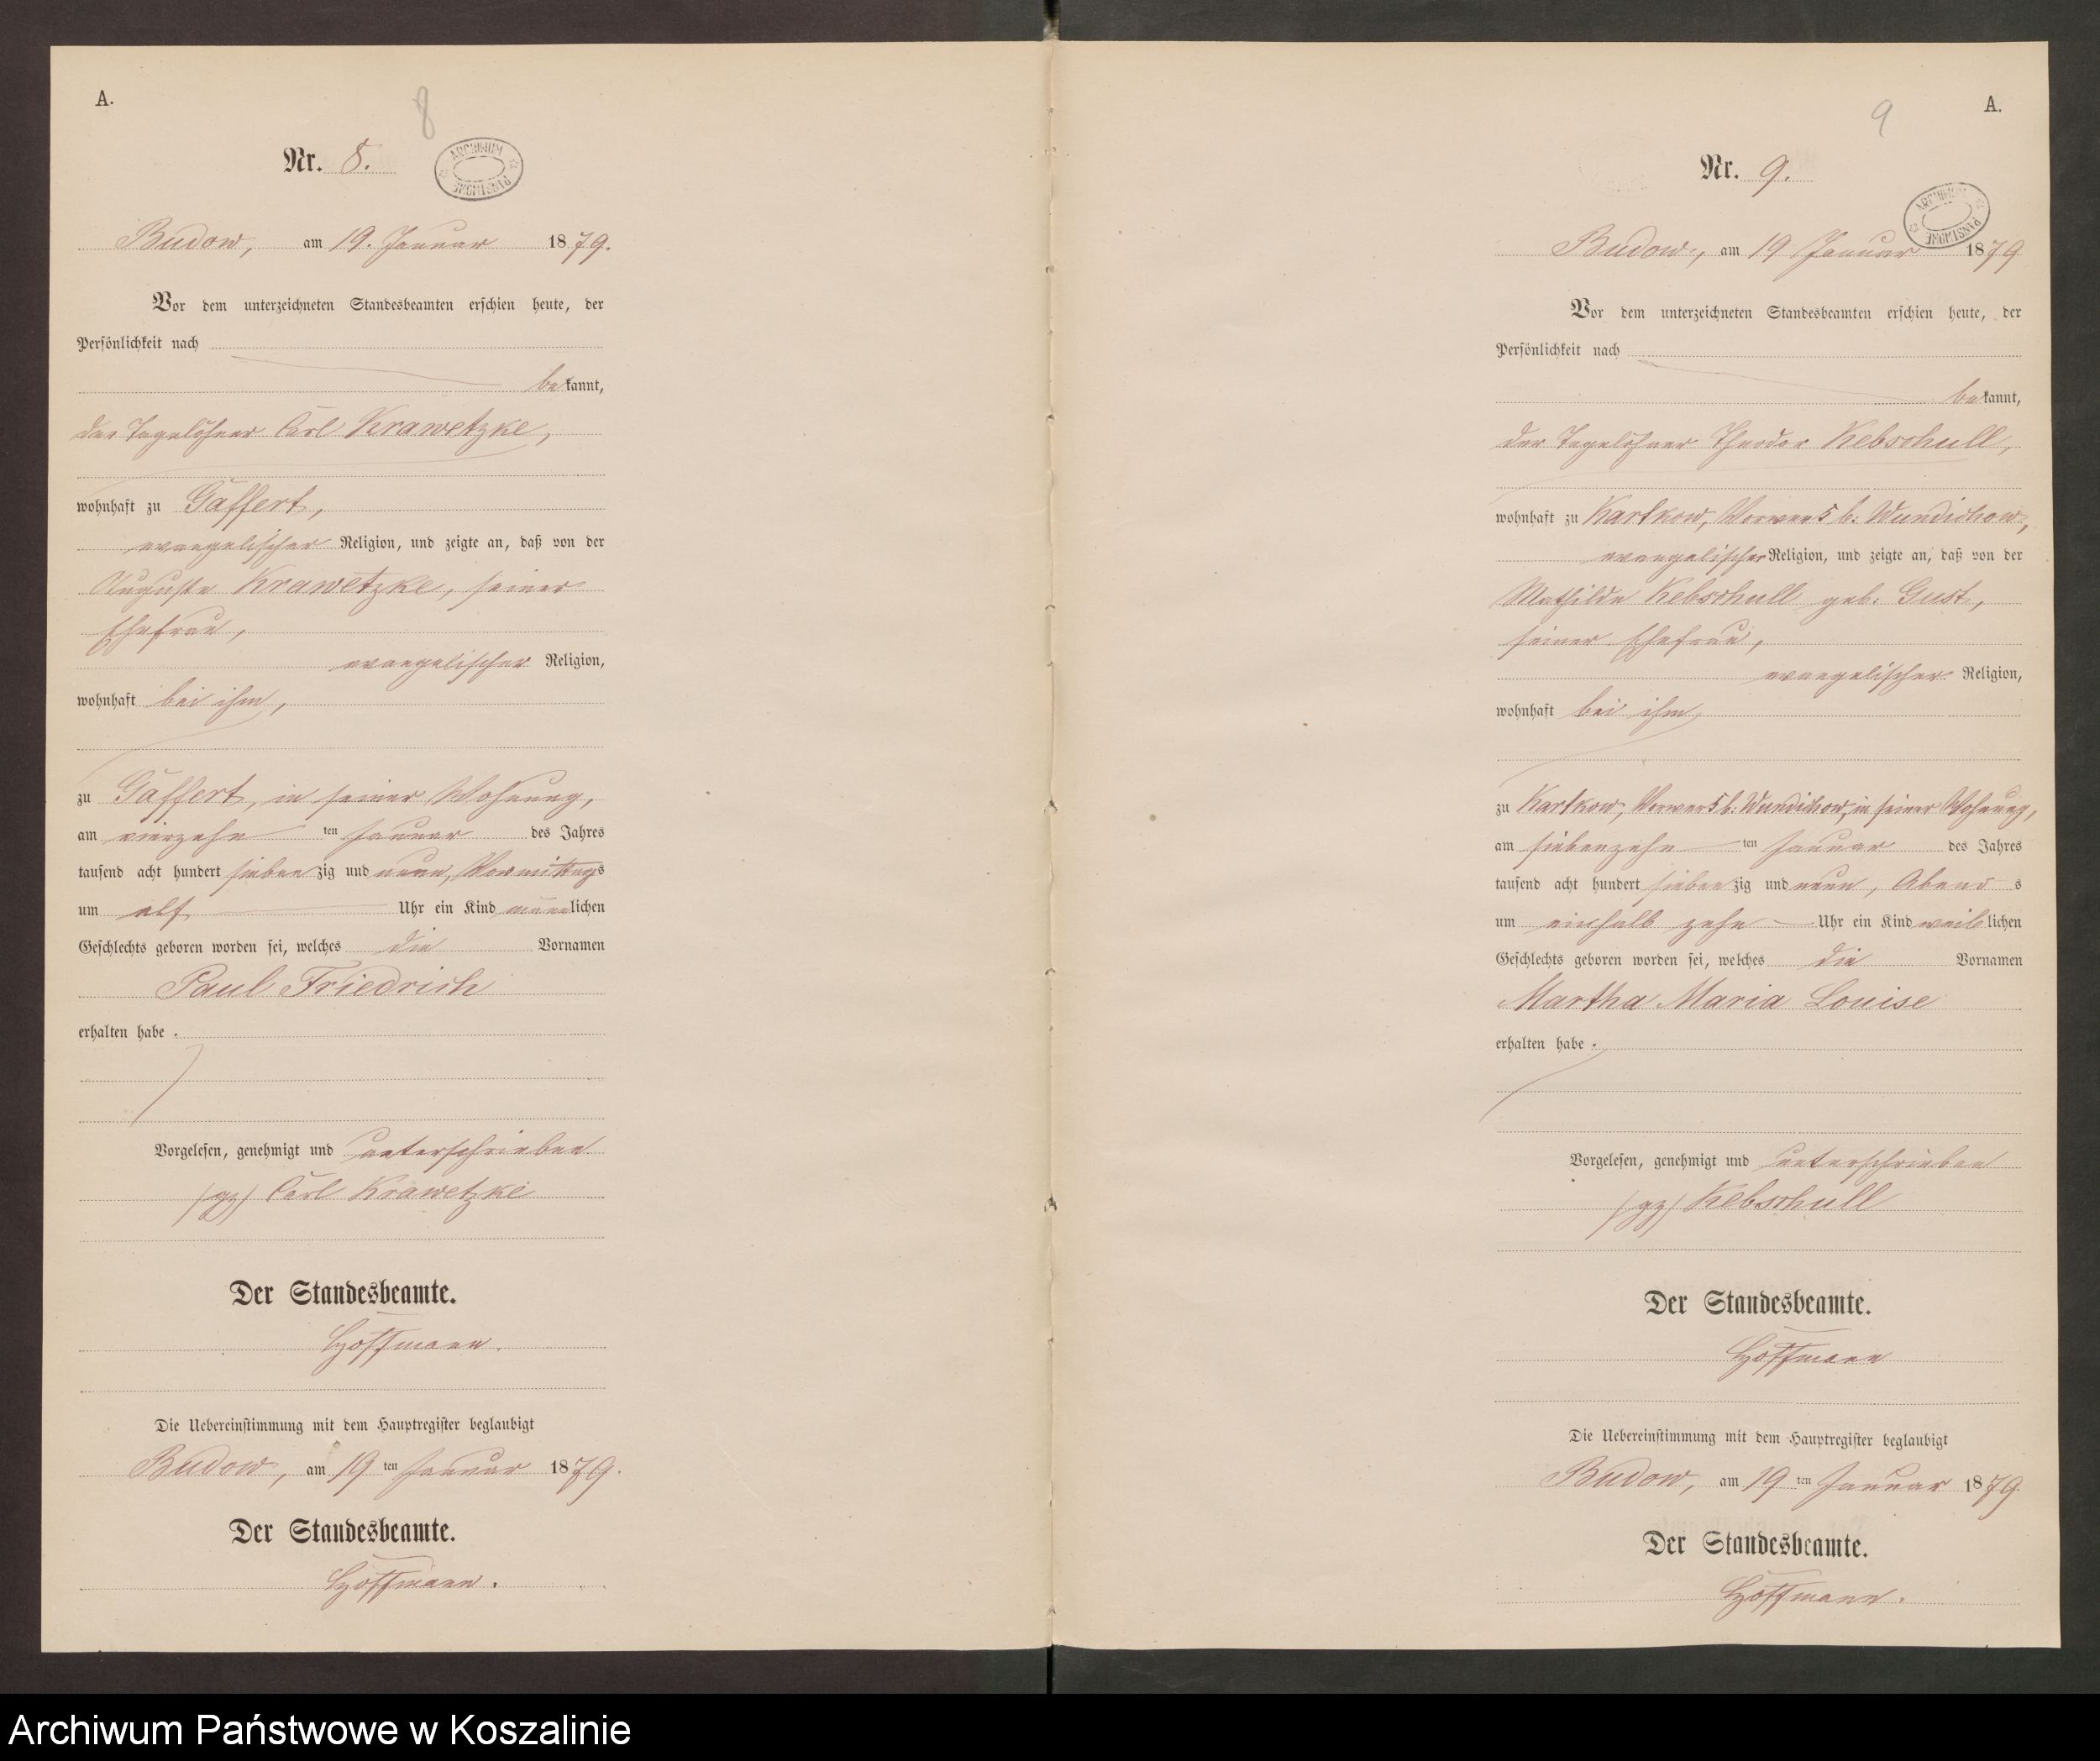 A.
8
Nr. 8.
ARCHIWUM PAŃSTWOWE
Budow, am 19. Januar 1879.
Vor dem unterzeichneten Standesbeamten erschien heute, der
Persönlichkeit nach
bekannt,
der Tagelöhner Carl Krawetzke,
wohnhaft zu Gaffert,
evangelischer Religion, und zeigte an, daß von der
Auguste Krawetzke, seiner
Ehefrau,
evangelischer Religion,
wohnhaft bei ihm,
zu Gaffert, in seiner Wohnung,
am vierzehn ten Januar des Jahres
tausend acht hundert siebenzig und neun, Vormittags
um elf Uhr ein Kind männlichen
Geschlechts geboren worden sei, welches die Vornamen
Paul Friedrich
erhalten habe.
Vorgelesen, genehmigt und unterschrieben
(gz) Carl Krawetzke
Der Standesbeamte.
Hoffmann.
Die Uebereinstimmung mit dem Hauptregister beglaubigt
Budow, am 19 ten Januar 1879.
Der Standesbeamte.
Hoffmann.
A.
9
Nr. 9.
ARCHIWUM PAŃSTWOWE
Budow, am 19 Januar 1879
Vor dem unterzeichneten Standesbeamten erschien heute, der
Persönlichkeit nach
bekannt,
der Tagelöhner Theodor Kebschull,
wohnhaft zu Kartkow, Vorwerk b. Wundichow,
evangelischer Religion, und zeigte an, daß von der
Mathilde Kebschull geb. Gust,
seiner Ehefrau,
evangelischer Religion,
wohnhaft bei ihm,
zu Kartkow, Vorwerk b. Wundichow, in seiner Wohnung,
am siebenzehn ten Januar des Jahres
tausend acht hundert siebenzig und neun, Abends
um einhalb zehn Uhr ein Kind weiblichen
Geschlechts geboren worden sei, welches die Vornamen
Martha Maria Louise
erhalten habe.
Vorgelesen, genehmigt und unterschrieben
(gz) Kebschull
Der Standesbeamte.
Hoffmann
Die Uebereinstimmung mit dem Hauptregister beglaubigt
Budow, am 19 ten Januar 1879
Der Standesbeamte.
Hoffmann.
Archiwum Państwowe w Koszalinie